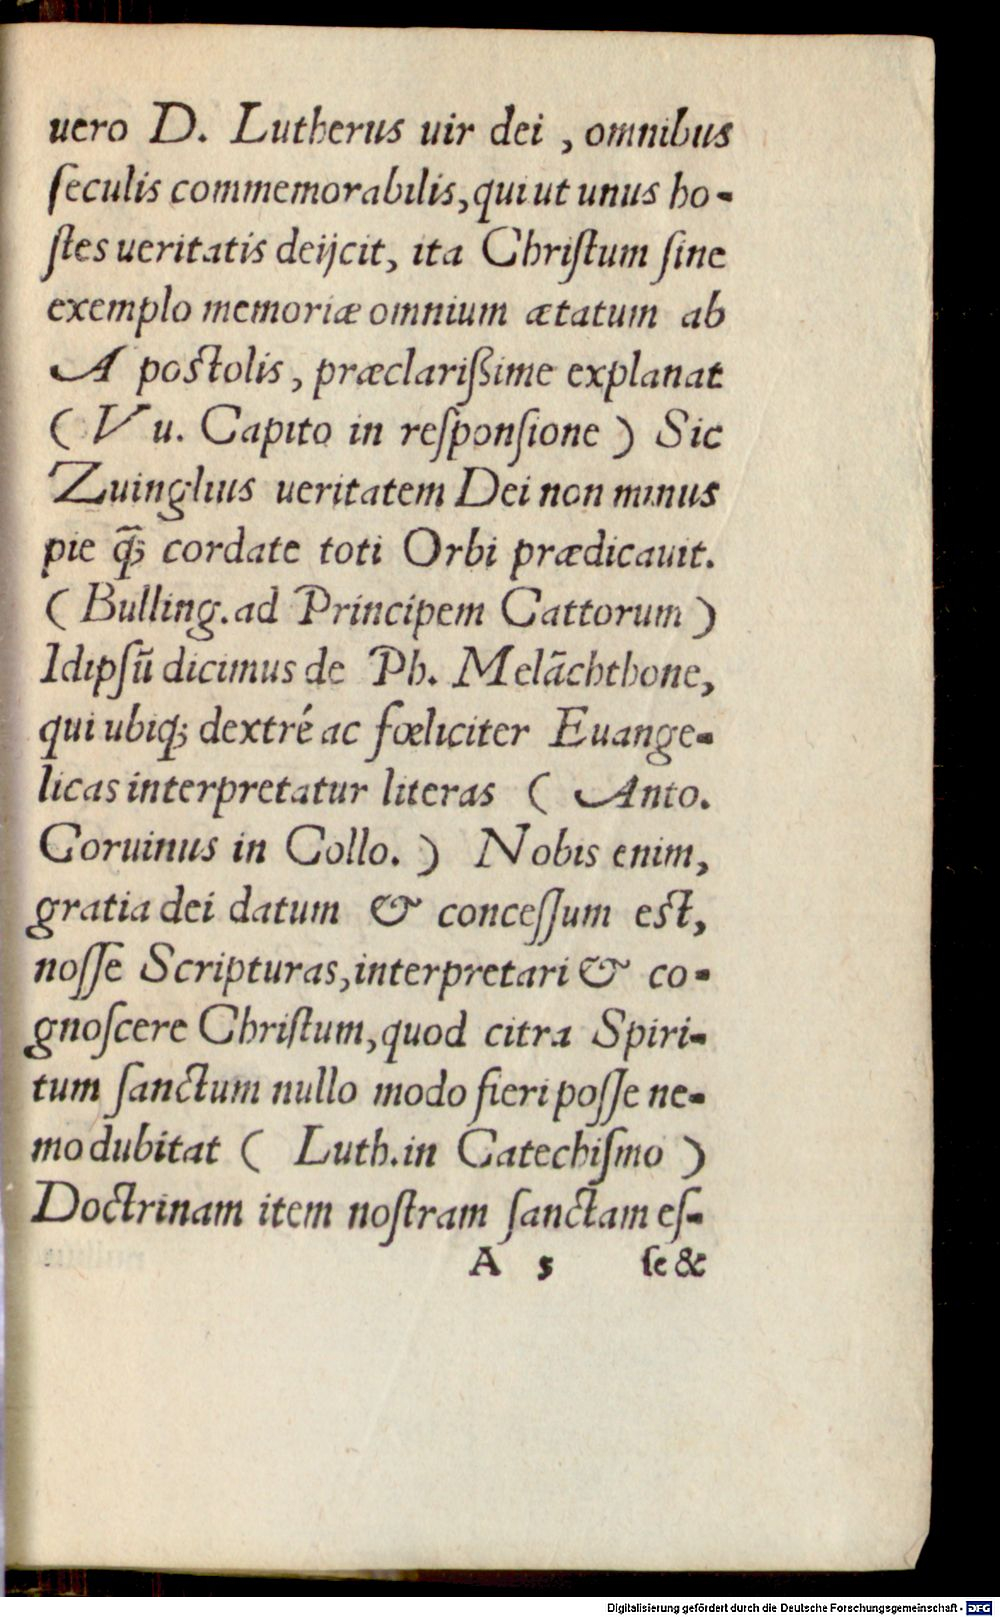 uero D. Lutherus uir dei , omnibus
ſeculis commemorabilis, qui ut unus ho-
ſtes ueritatis deijcit, ita Chriſtum ſine
exemplo memoriæ omnium ætatum ab
Apostolis, præclariſsime explanat
( Vu. Capito in reſponſione ) Sic
Zuinglius ueritatem Dei non minus
pie q̃ꝫ cordate toti Orbi prædicauit.
( Bulling. ad Principem Cattorum )
Idipſũ dicimus de Ph. Melãchthone,
qui ubiqꝫ dextré ac fœliciter Euange-
licas interpretatur literas ( Anto.
Coruinus in Collo. ) Nobis enim,
gratia dei datum & conceſſum est,
noſſe Scripturas, interpretari & co-
gnoſcere Chriſtum, quod citra Spiri-
tum ſanctum nullo modo fieri poſſe ne-
mo dubitat ( Luth. in Catechiſmo )
Doctrinam item noſtram ſanctam eſ-
A 5 ſe &
Digitalisierung gefördert durch die Deutsche Forschungsgemeinschaft - DFG